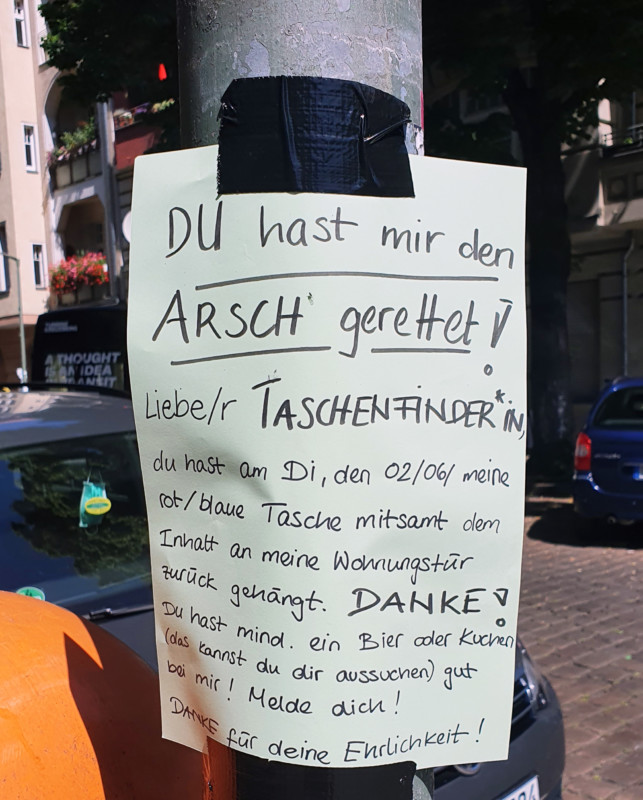 DU hast mir den
ARSCH gerettet!
Liebe/r TASCHENFINDER*iN,
du hast am Di, den 02/06/ meine
rot/blaue Tasche mitsamt dem
Inhalt an meine Wohnungstür
zurück gehängt. DANKE!
Du hast mind. ein Bier oder Kuchen
(das kannst du dir aussuchen) gut
bei mir! Melde dich!
DANKE für deine Ehrlichkeit!
A THOUGHT
IS AN IDEA